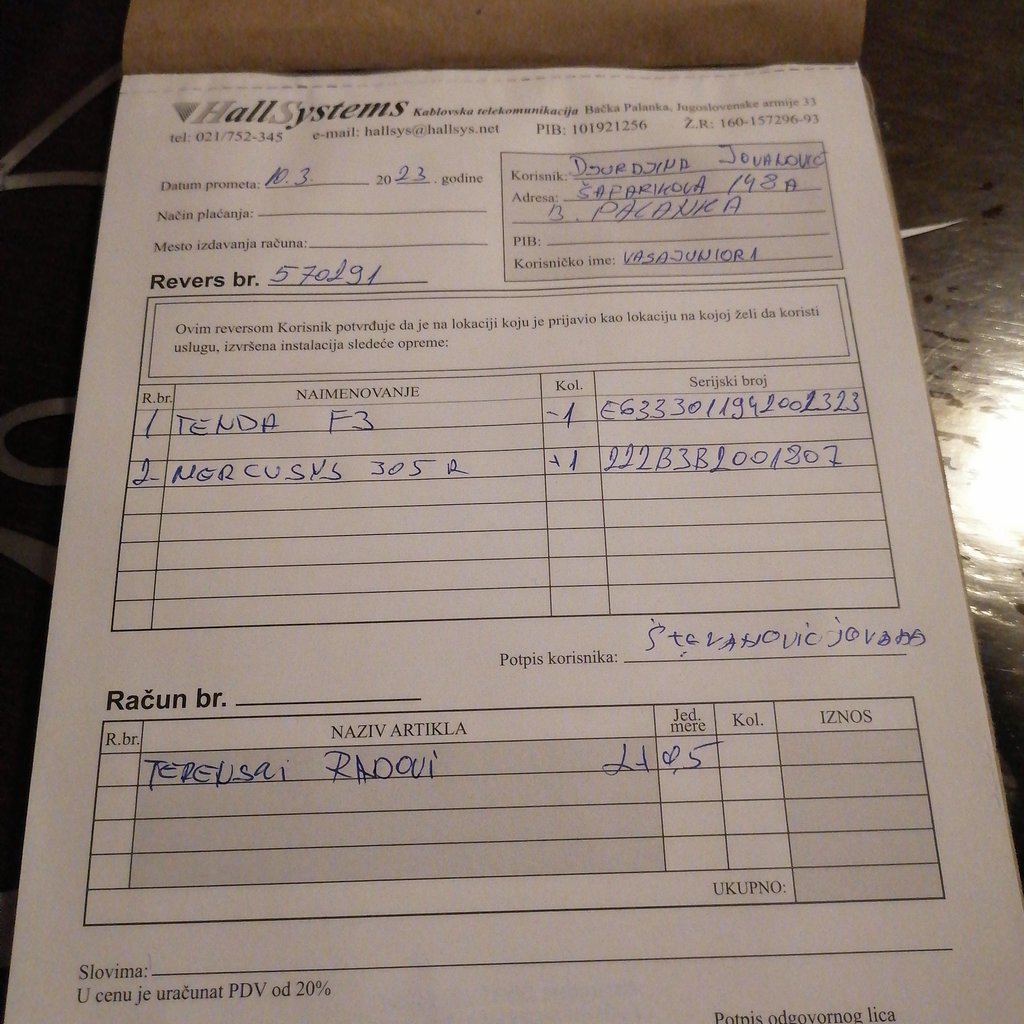 HallSystems Kablovska telekomunikacija Bačka Palanka, Jugoslovenske armije 33
tel: 021/752-345 e-mail: hallsys@hallsys.net PIB: 101921256 Ž.R: 160-157296-93
Datum prometa: 10.3. 2023. godine
Način plaćanja:
Mesto izdavanja računa:
Korisnik: DJURDJINA JOVANOVIĆ
Adresa: ŠAFARIKOVA 148A
B. PALANKA
PIB:
Korisničko ime: VASAJUNIOR1
Revers br. 570291
Ovim reversom Korisnik potvrđuje da je na lokaciji koju je prijavio kao lokaciju na kojoj želi da koristi
uslugu, izvršena instalacija sledeće opreme:
R.br. NAIMENOVANJE Kol. Serijski broj
1 TENDA F3 -1 E6333011942002323
2 MERCUSYS 305R +1 222B3B2001807
Potpis korisnika: Števanović Jovana
Račun br.
R.br. NAZIV ARTIKLA Jed. mere Kol. IZNOS
TERENSKI RADOVI 0,5
UKUPNO:
Slovima:
U cenu je uračunat PDV od 20%
Potpis odgovornog lica